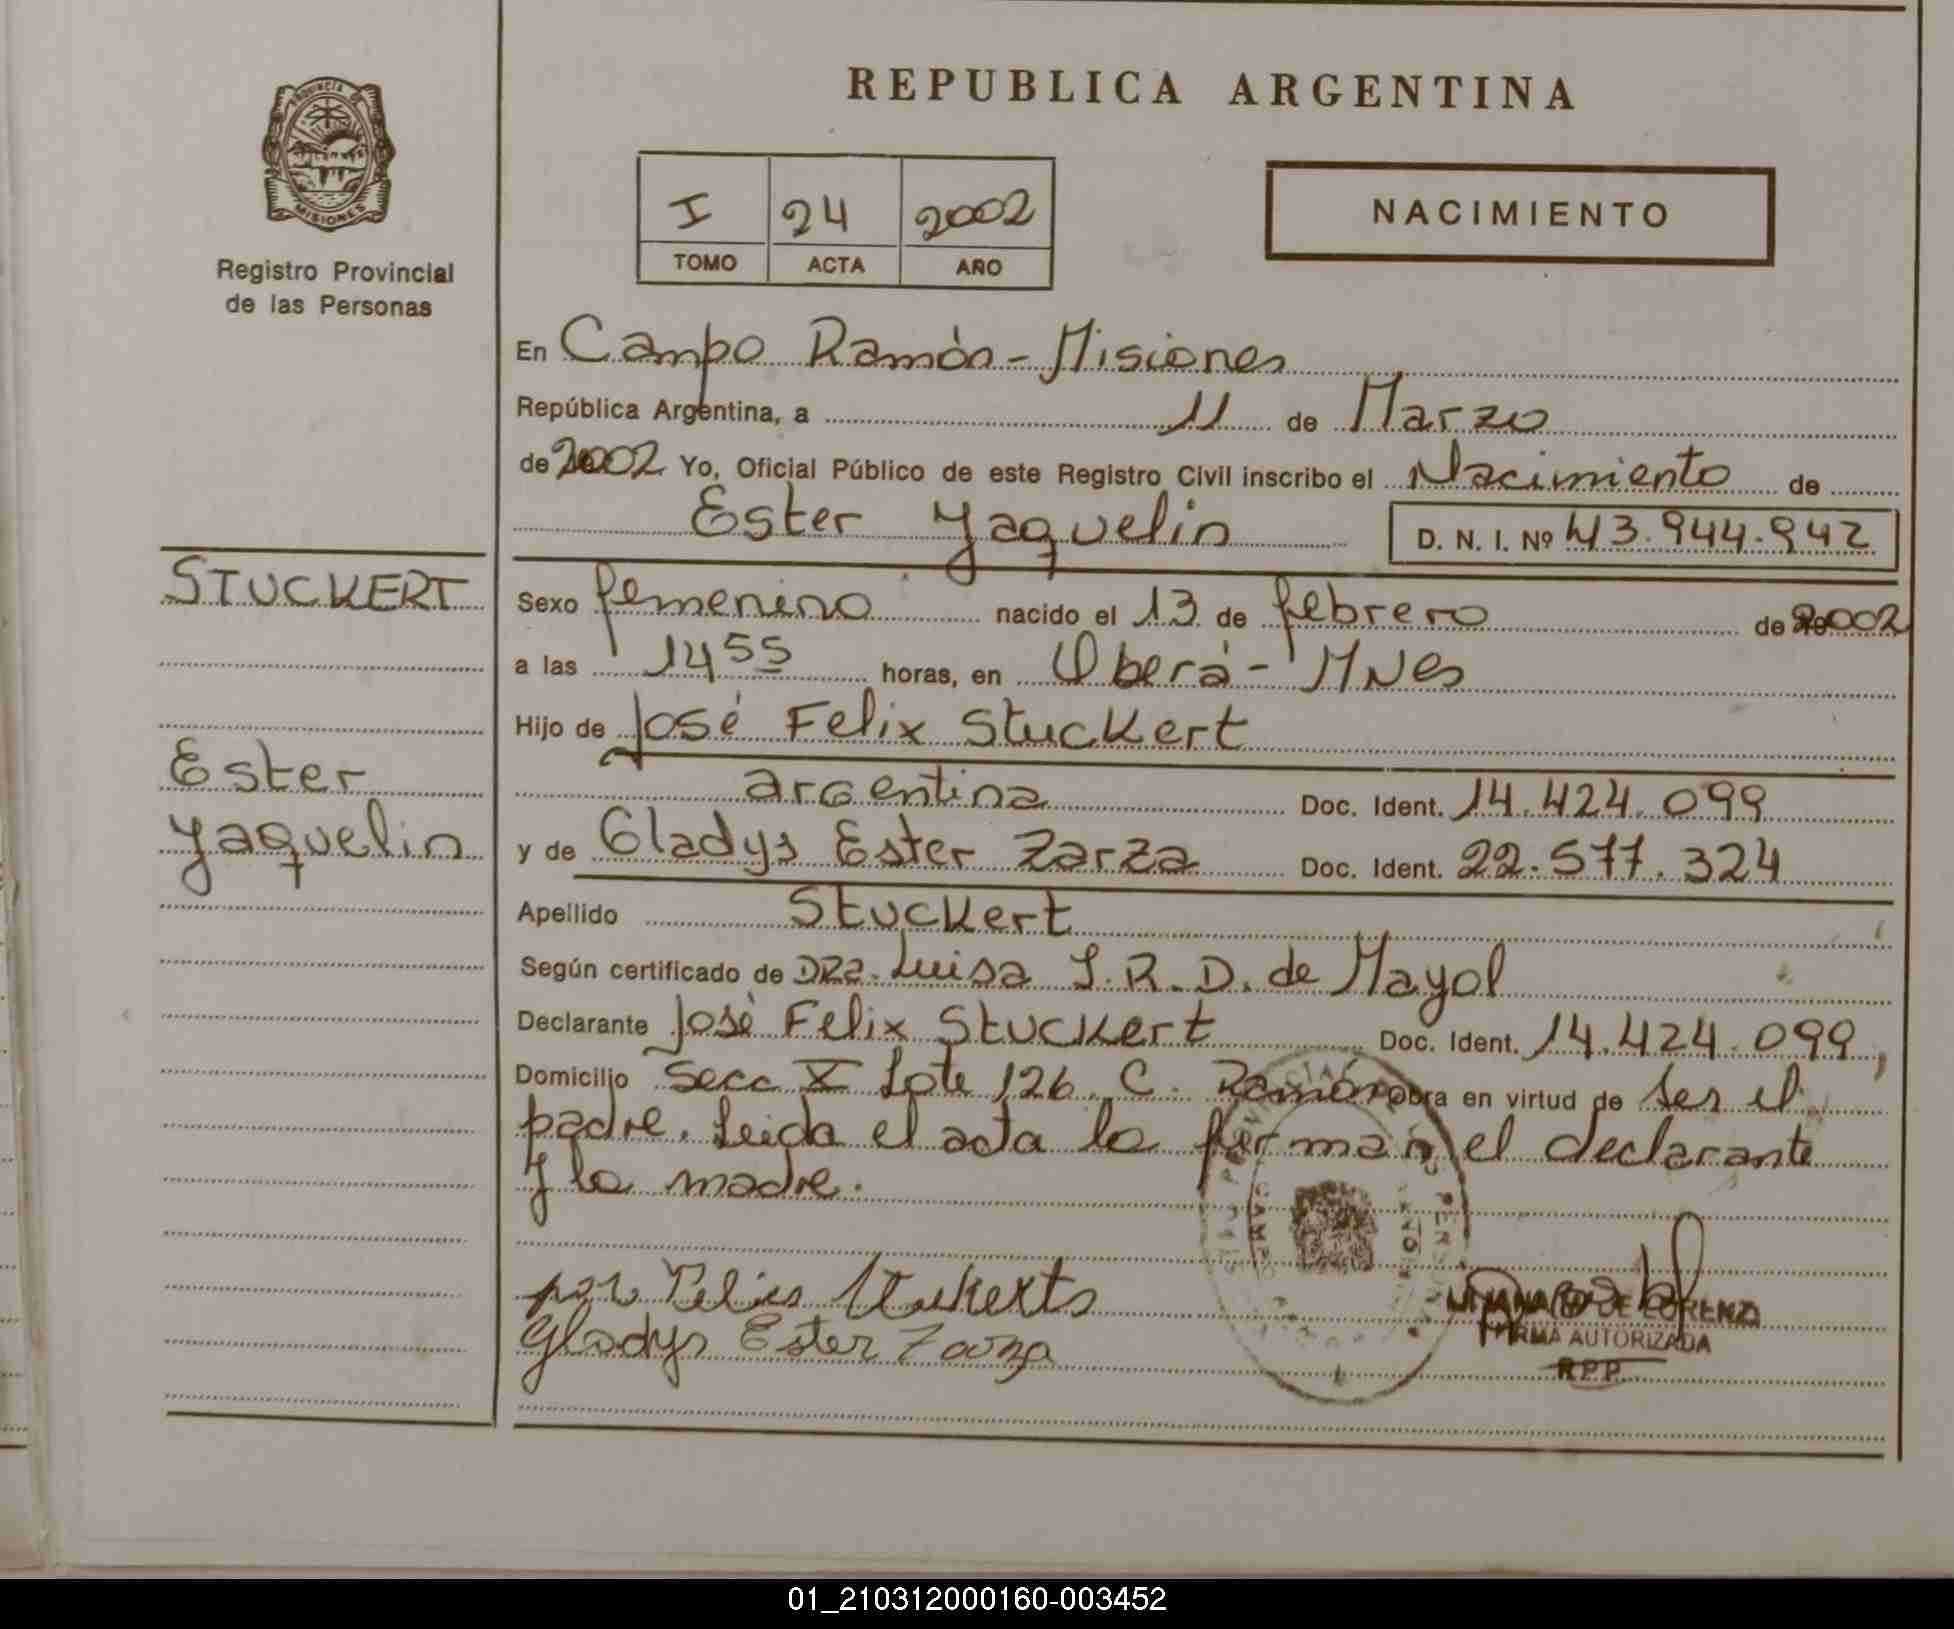 REPUBLICA ARGENTINA
PROVINCIA DE
MISIONES
Registro Provincial
de las Personas
I 24 2002
TOMO ACTA AÑO
NACIMIENTO
En Campo Ramón - Misiones
República Argentina, a 11 de Marzo
de 2002 Yo, Oficial Público de este Registro Civil inscribo el Nacimiento de
Ester Yaquelin D. N. I. Nº 43.944.942
STUCKERT
Ester
Yaquelin
Sexo femenino nacido el 13 de febrero de 2002
a las 14 55 horas, en Oberá - MNes
Hijo de José Felix Stuckert
argentina Doc. Ident. 14.424.099
y de Gladys Ester Zarza Doc. Ident. 22.577.324
Apellido Stuckert
Según certificado de DRa. Luisa S.R.D. de Mayol
Declarante José Felix Stuckert Doc. Ident. 14.424.099,
Domicilio Secc X Lote 126 C. Ramón obra en virtud de ser el
padre. Leida el acta la firman el declarante
y la madre.
Stukerts
Gladys Ester Zarza
DE LORENZI
FIRMA AUTORIZADA
R.P.P.
01_210312000160-003452